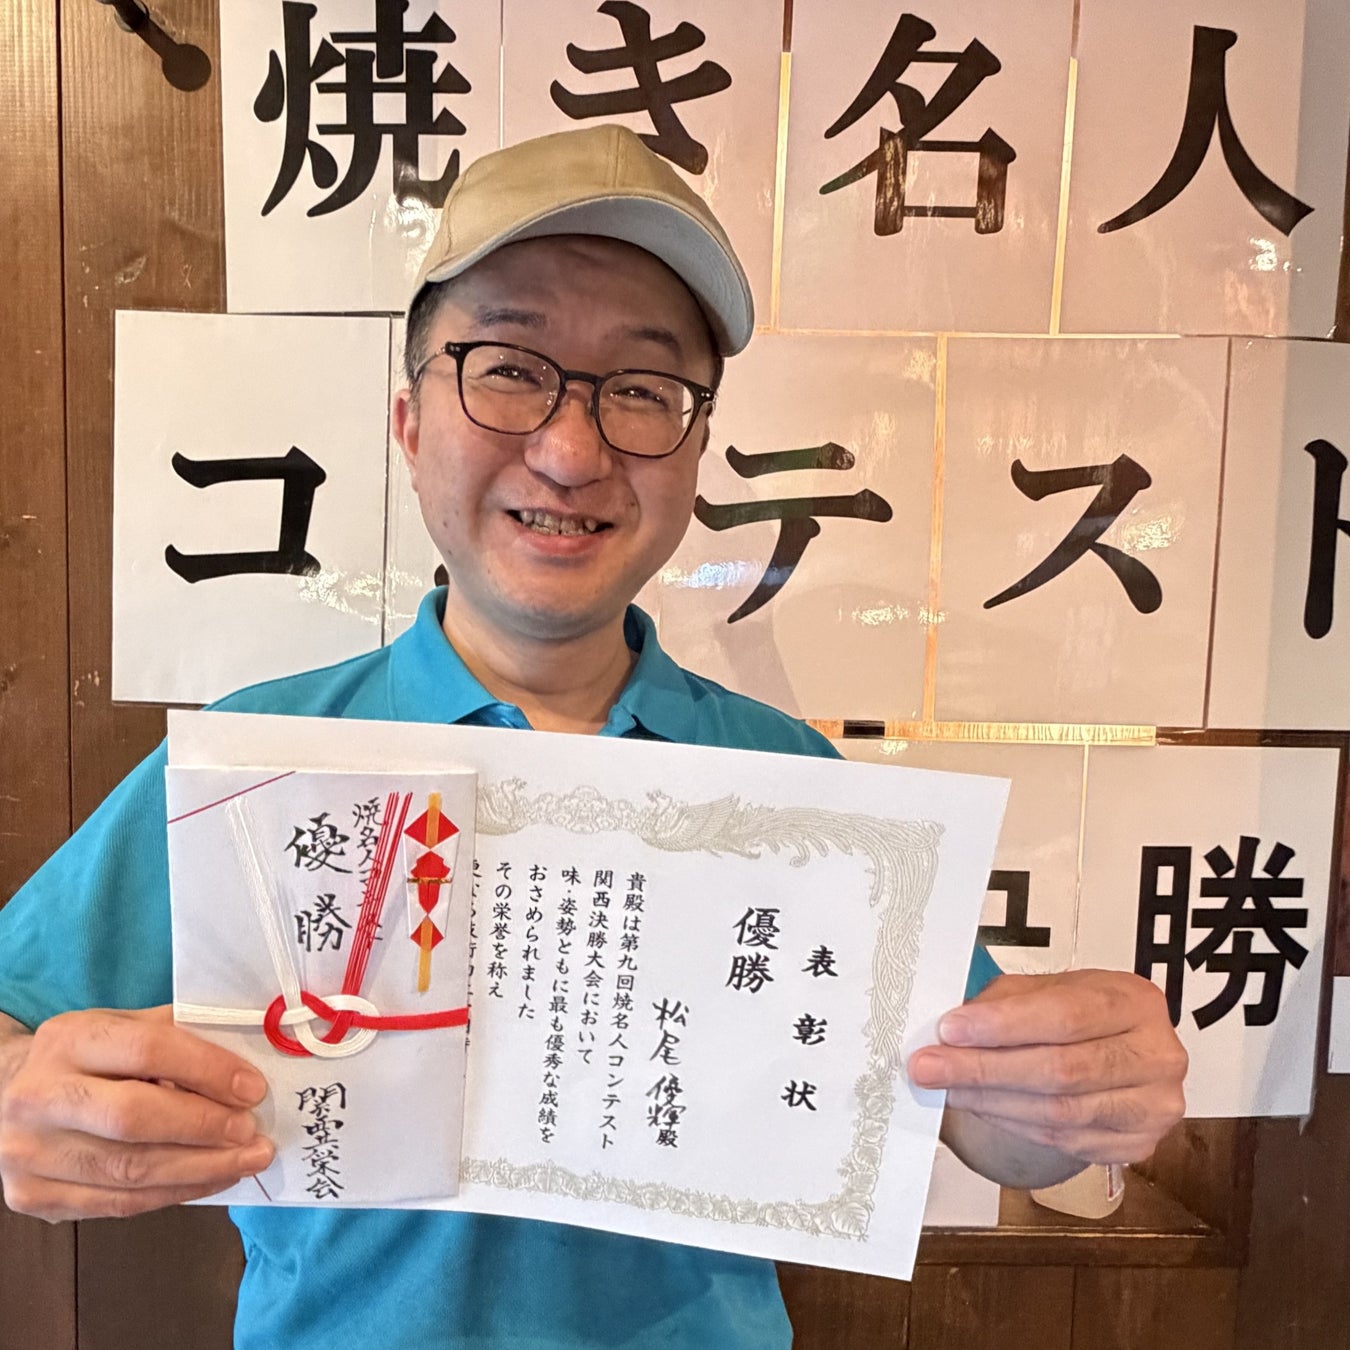 焼き名人
コ
テスト
勝
表彰状
優勝
松尾 優輝殿
貴殿は第九回焼名人コンテスト
関西決勝大会において
味・姿勢ともに最も優秀な成績を
おさめられました
その栄誉を称え
焼名人コンテスト
優勝